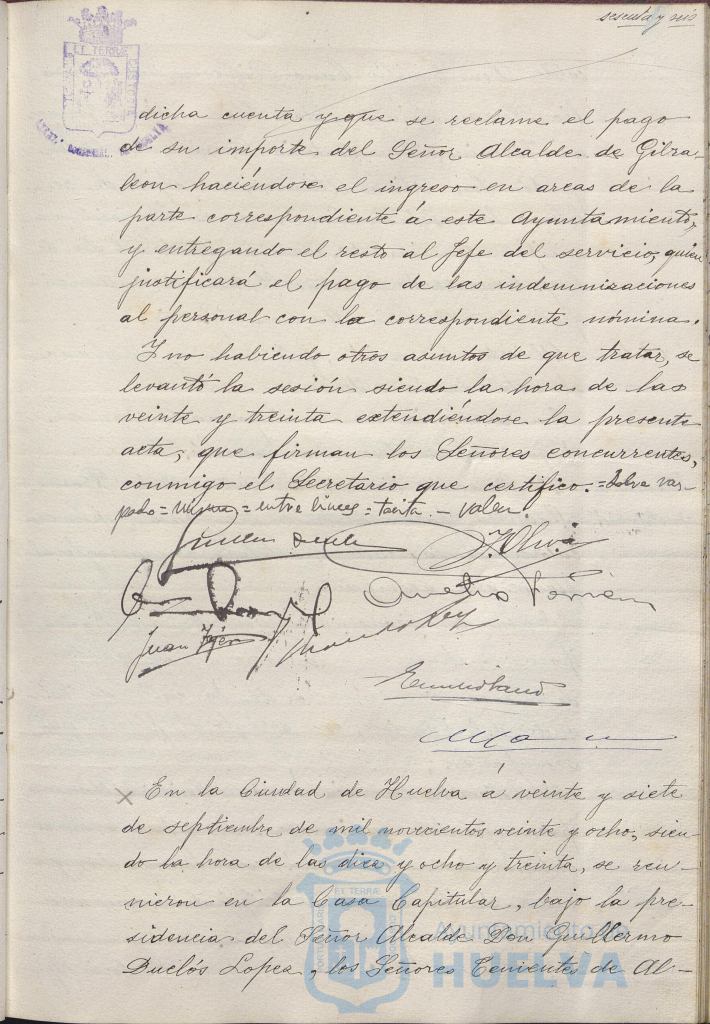 sesenta y seis
ET TERRÆ
dicha cuenta y que se reclame el pago
de su importe del Señor Alcalde de Gibra-
leon haciéndose el ingreso en arcas de la
parte correspondiente á este Ayuntamiento,
y entregando el resto al Jefe del servicio, quien
justificará el pago de las indemnizaciones
al personal con la correspondiente nómina.
Y no habiendo otros asuntos de que tratar, se
levantó la sesión siendo la hora de las
veinte y treinta extendiéndose la presente
acta, que firman los Señores concurrentes,
conmigo el Secretario que certifico.=Sobre ras-
pado = = entre lineas = = valen.
J. Oliva
Juan
En la Ciudad de Huelva á veinte y siete
de septiembre de mil novecientos veinte y ocho, sien-
do la hora de las diez y ocho y treinta, se reu-
nieron en la Casa Capitular, bajo la pre-
sidencia del Señor Alcalde Don Guillermo
Duclós Lopez, los Señores Tenientes de Al-
ET TERRÆ
Ayuntamiento de
HUELVA